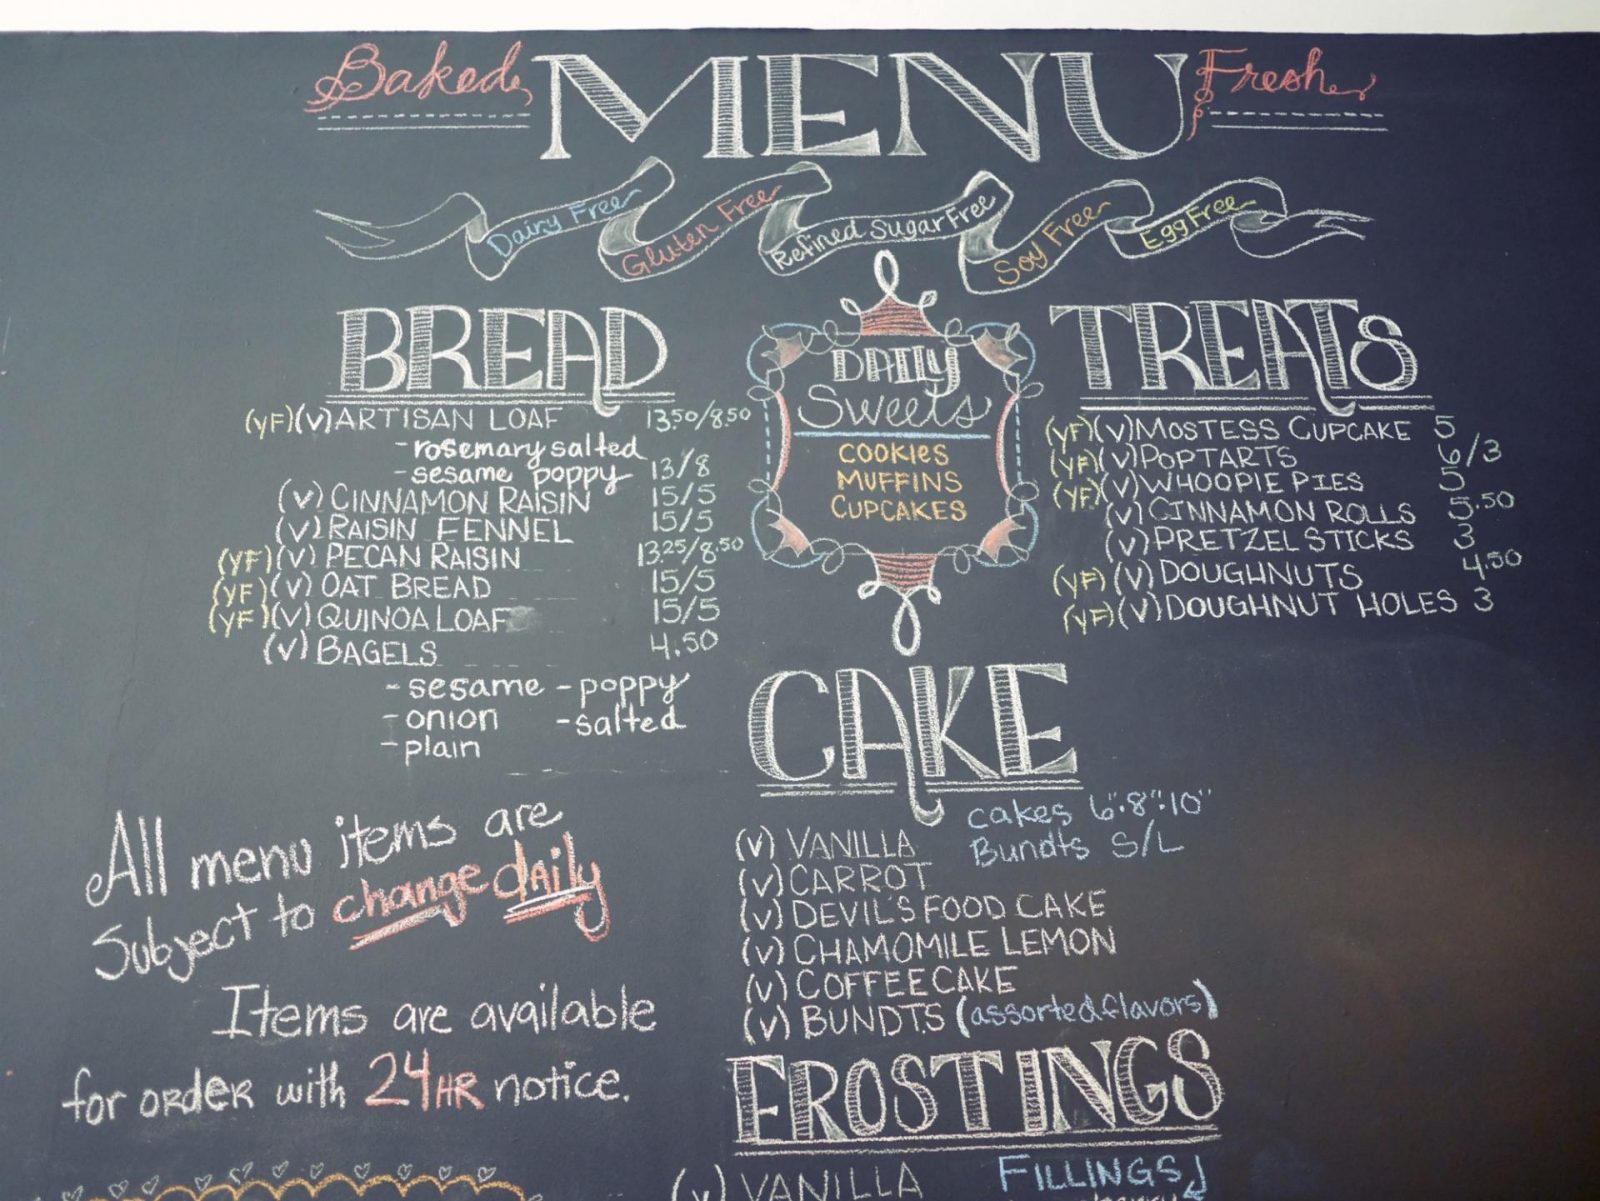 Baked MENU Fresh
Dairy Free Gluten Free Refined Sugar Free Soy Free Egg Free
BREAD
(YF)(V) ARTISAN LOAF 13.50/8.50
- rosemary salted
- sesame poppy 13/8
(V) CINNAMON RAISIN 15/5
(V) RAISIN FENNEL 15/5
(YF)(V) PECAN RAISIN 13.25/8.50
(YF)(V) OAT BREAD 15/5
(YF)(V) QUINOA LOAF 15/5
(V) BAGELS 4.50
- sesame - poppy
- onion - salted
- plain
DAILY
Sweets
COOKIES
MUFFINS
CUPCAKES
TREATS
(YF)(V) MOSTESS CUPCAKE 5
(YF)(V) POPTARTS 6/3
(YF)(V) WHOOPIE PIES 5
(V) CINNAMON ROLLS 5.50
(V) PRETZEL STICKS 3
(YF)(V) DOUGHNUTS 4.50
(YF)(V) DOUGHNUT HOLES 3
All menu items are
Subject to change daily
Items are available
for order with 24HR notice.
CAKE
cakes 6":8":10"
Bundts S/L
(V) VANILLA
(V) CARROT
(V) DEVIL'S FOOD CAKE
(V) CHAMOMILE LEMON
(V) COFFEECAKE
(V) BUNDTS (assorted flavors)
FROSTINGS
(V) VANILLA FILLINGS